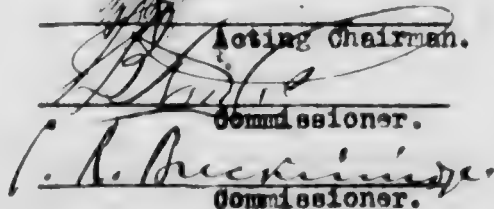 Acting Chairman.
Commissioner.
C. R. Breckinridge.
Commissioner.